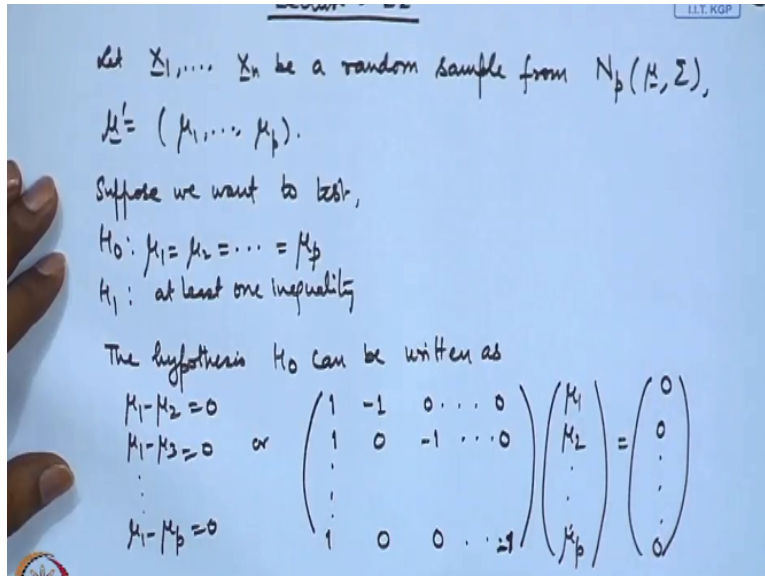 I.I.T. KGP
Let X̲₁, .... X̲ₙ be a random sample from Nₚ(μ̲, Σ),
μ̲' = (μ₁, ..., μₚ).
Suppose we want to test,
H₀: μ₁ = μ₂ = ... = μₚ
H₁: at least one inequality
The hypothesis H₀ can be written as
μ₁-μ₂=0
μ₁-μ₃=0
⋮
μ₁-μₚ=0
or
( 1 -1 0 ... 0 ) ( μ₁ ) = ( 0 )
( 1 0 -1 ... 0 ) ( μ₂ ) ( 0 )
( ⋮ ) ( ⋮ ) ( ⋮ )
( 1 0 0 .. -1 ) ( μₚ ) ( 0 )